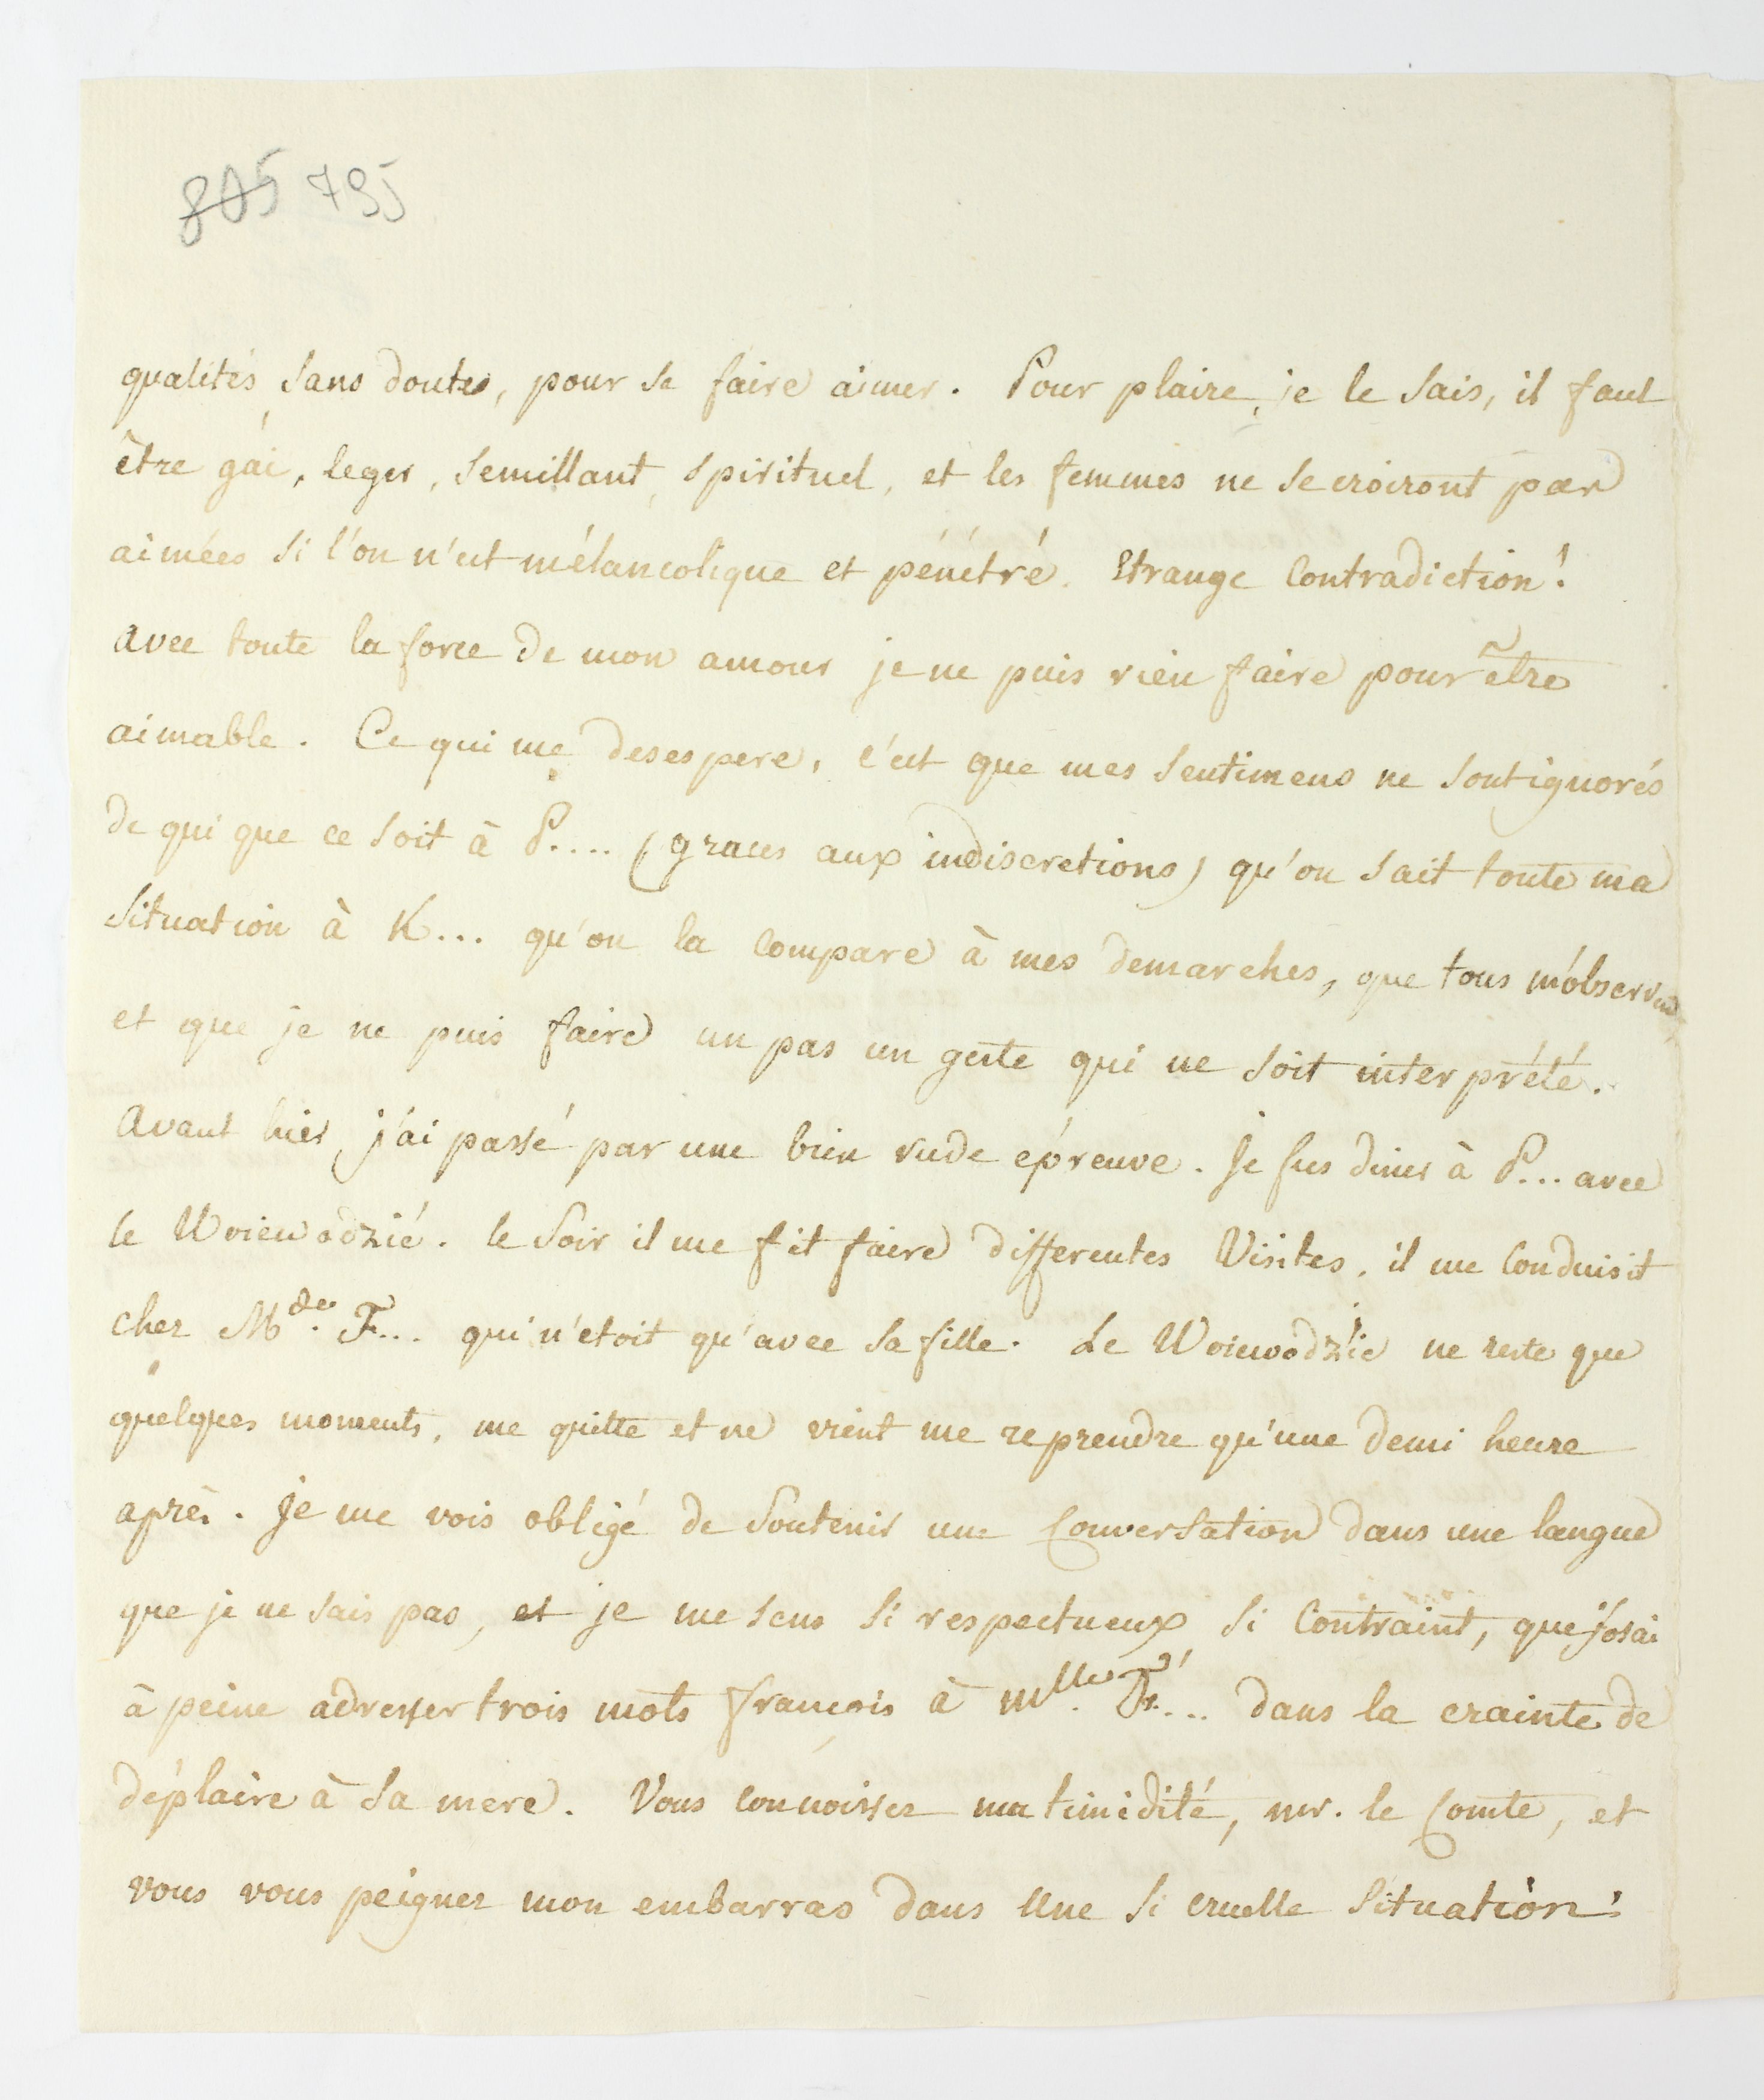 805 795
qualités sans doutes, pour se faire aimer. Pour plaire, je le sais, il faut
être gái, leger, semillant, spirituel, et les femmes ne se croiront pas
aimées si l'on n'est mélancolique et pénétré. Etrange Contradiction!
avec toute la force de mon amour je ne puis rien faire pour être
aimable. Ce qui me desespere, c'est que mes sentimens ne sont ignorés
de qui que ce soit à P.... (graces aux indiscretions) qu'on sait toute ma
situation à K... qu'on la compare à mes demarches, que tous m'observent
et que je ne puis faire un pas un geste qui ne soit interprété.
avant hier j'ai passé par une bien rude épreuve. Je fus diner à P... avec
le Woiewodzié. le soir il me fit faire differentes Visites, il me Conduisit
chez Mde. F... qui n'etoit qu'avec sa fille. Le Woiewodzic ne reste que
quelques moments, me quitte et ne vient me reprendre qu'une demi heure
après. Je me vois obligé de soutenir une Conversation dans une langue
que je ne sais pas, et je me sens si respectueux si Contraint, que j'osai
à peine adresser trois mots françois à Mlle. F... dans la crainte de
déplaire à sa mere. Vous connoissez ma timidité, mr. le Comte, et
vous vous peignez mon embarras dans une si cruelle situation!